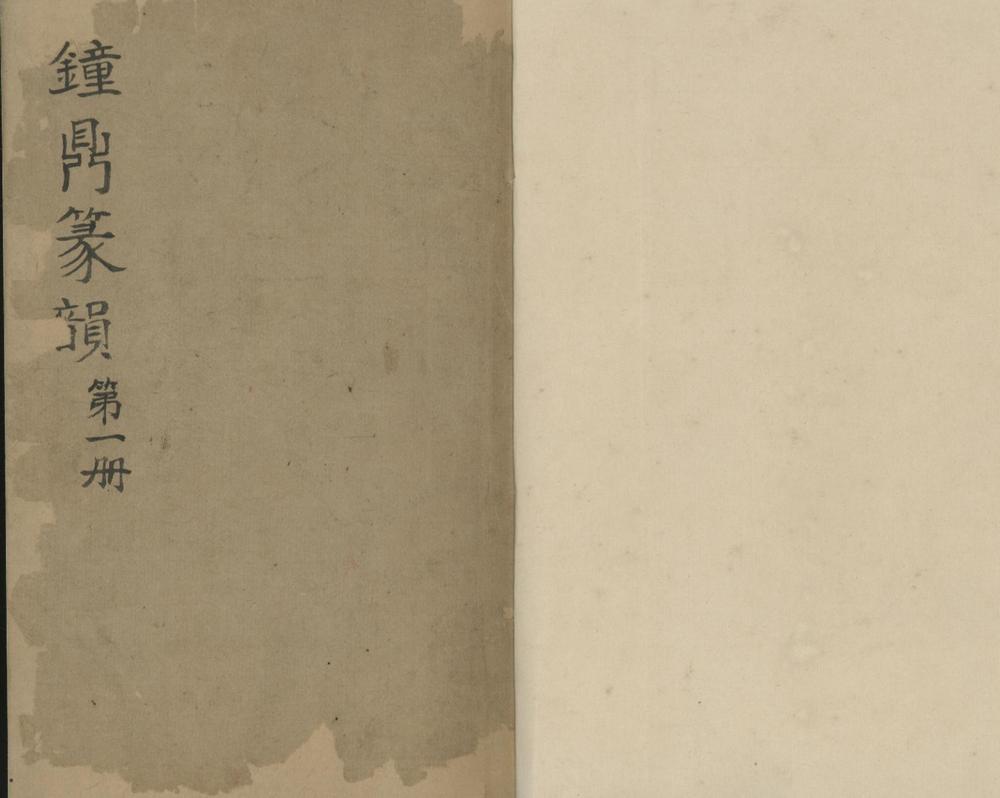 鐘鼎篆韻第一册